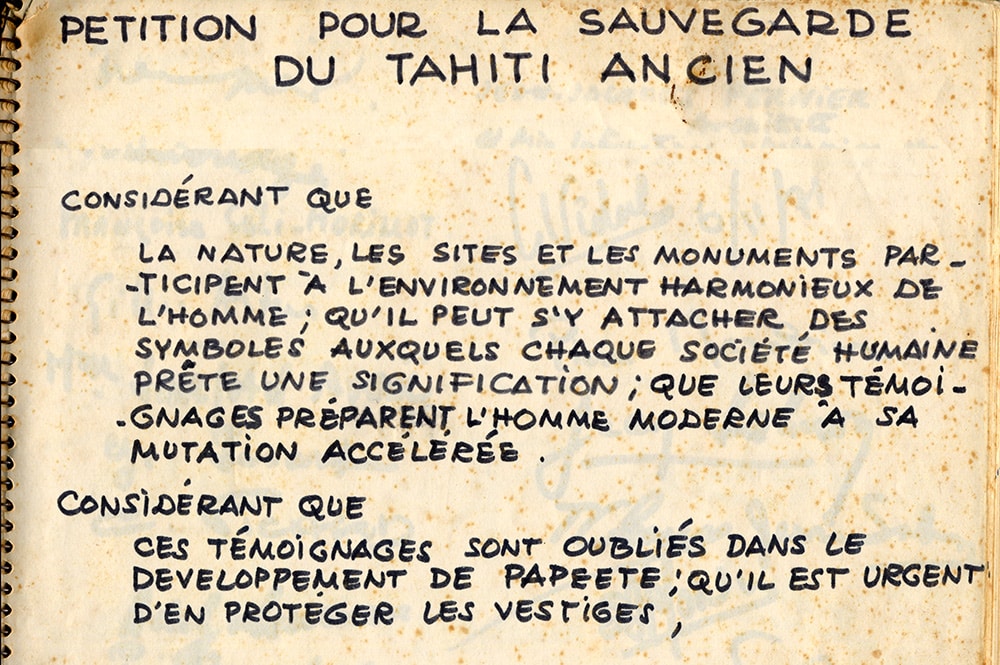 PETITION POUR LA SAUVEGARDE
DU TAHITI ANCIEN
CONSIDÉRANT QUE
LA NATURE, LES SITES ET LES MONUMENTS PAR-
-TICIPENT À L'ENVIRONNEMENT HARMONIEUX DE
L'HOMME ; QU'IL PEUT S'Y ATTACHER DES
SYMBOLES AUXQUELS CHAQUE SOCIÉTÉ HUMAINE
PRÊTE UNE SIGNIFICATION ; QUE LEURS TÉMOI-
-GNAGES PRÉPARENT L'HOMME MODERNE À SA
MUTATION ACCÉLÉRÉE.
CONSIDÉRANT QUE
CES TÉMOIGNAGES SONT OUBLIÉS DANS LE
DEVELOPPEMENT DE PAPEETE ; QU'IL EST URGENT
D'EN PROTÉGER LES VESTIGES,